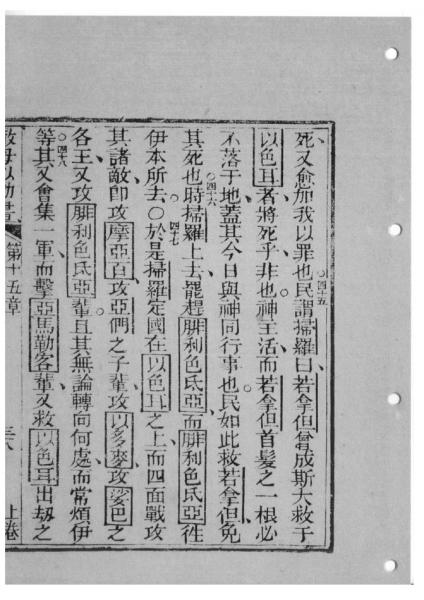 死又愈加我以罪也○四十五民謂掃羅曰若拿但曾成斯大救于
以色耳者將死乎非也神王活而若拿但首髮之一根必
不落于地蓋其今日與神同行事也民如此救若拿但免
其死也○四十六時掃羅上去罷趕腓利色氏亞而腓利色氏亞徃
伊本所去○四十七於是掃羅定國在以色耳之上而四面戰攻
其諸敵即攻摩亞百攻亞們之子輩攻以多麥攻娑巴之
各王又攻腓利色氏亞輩且其無論轉向何處而常煩伊
等○四十八其又會集一軍而擊亞馬勒客輩又救以色耳出刼之
第十五章 上卷